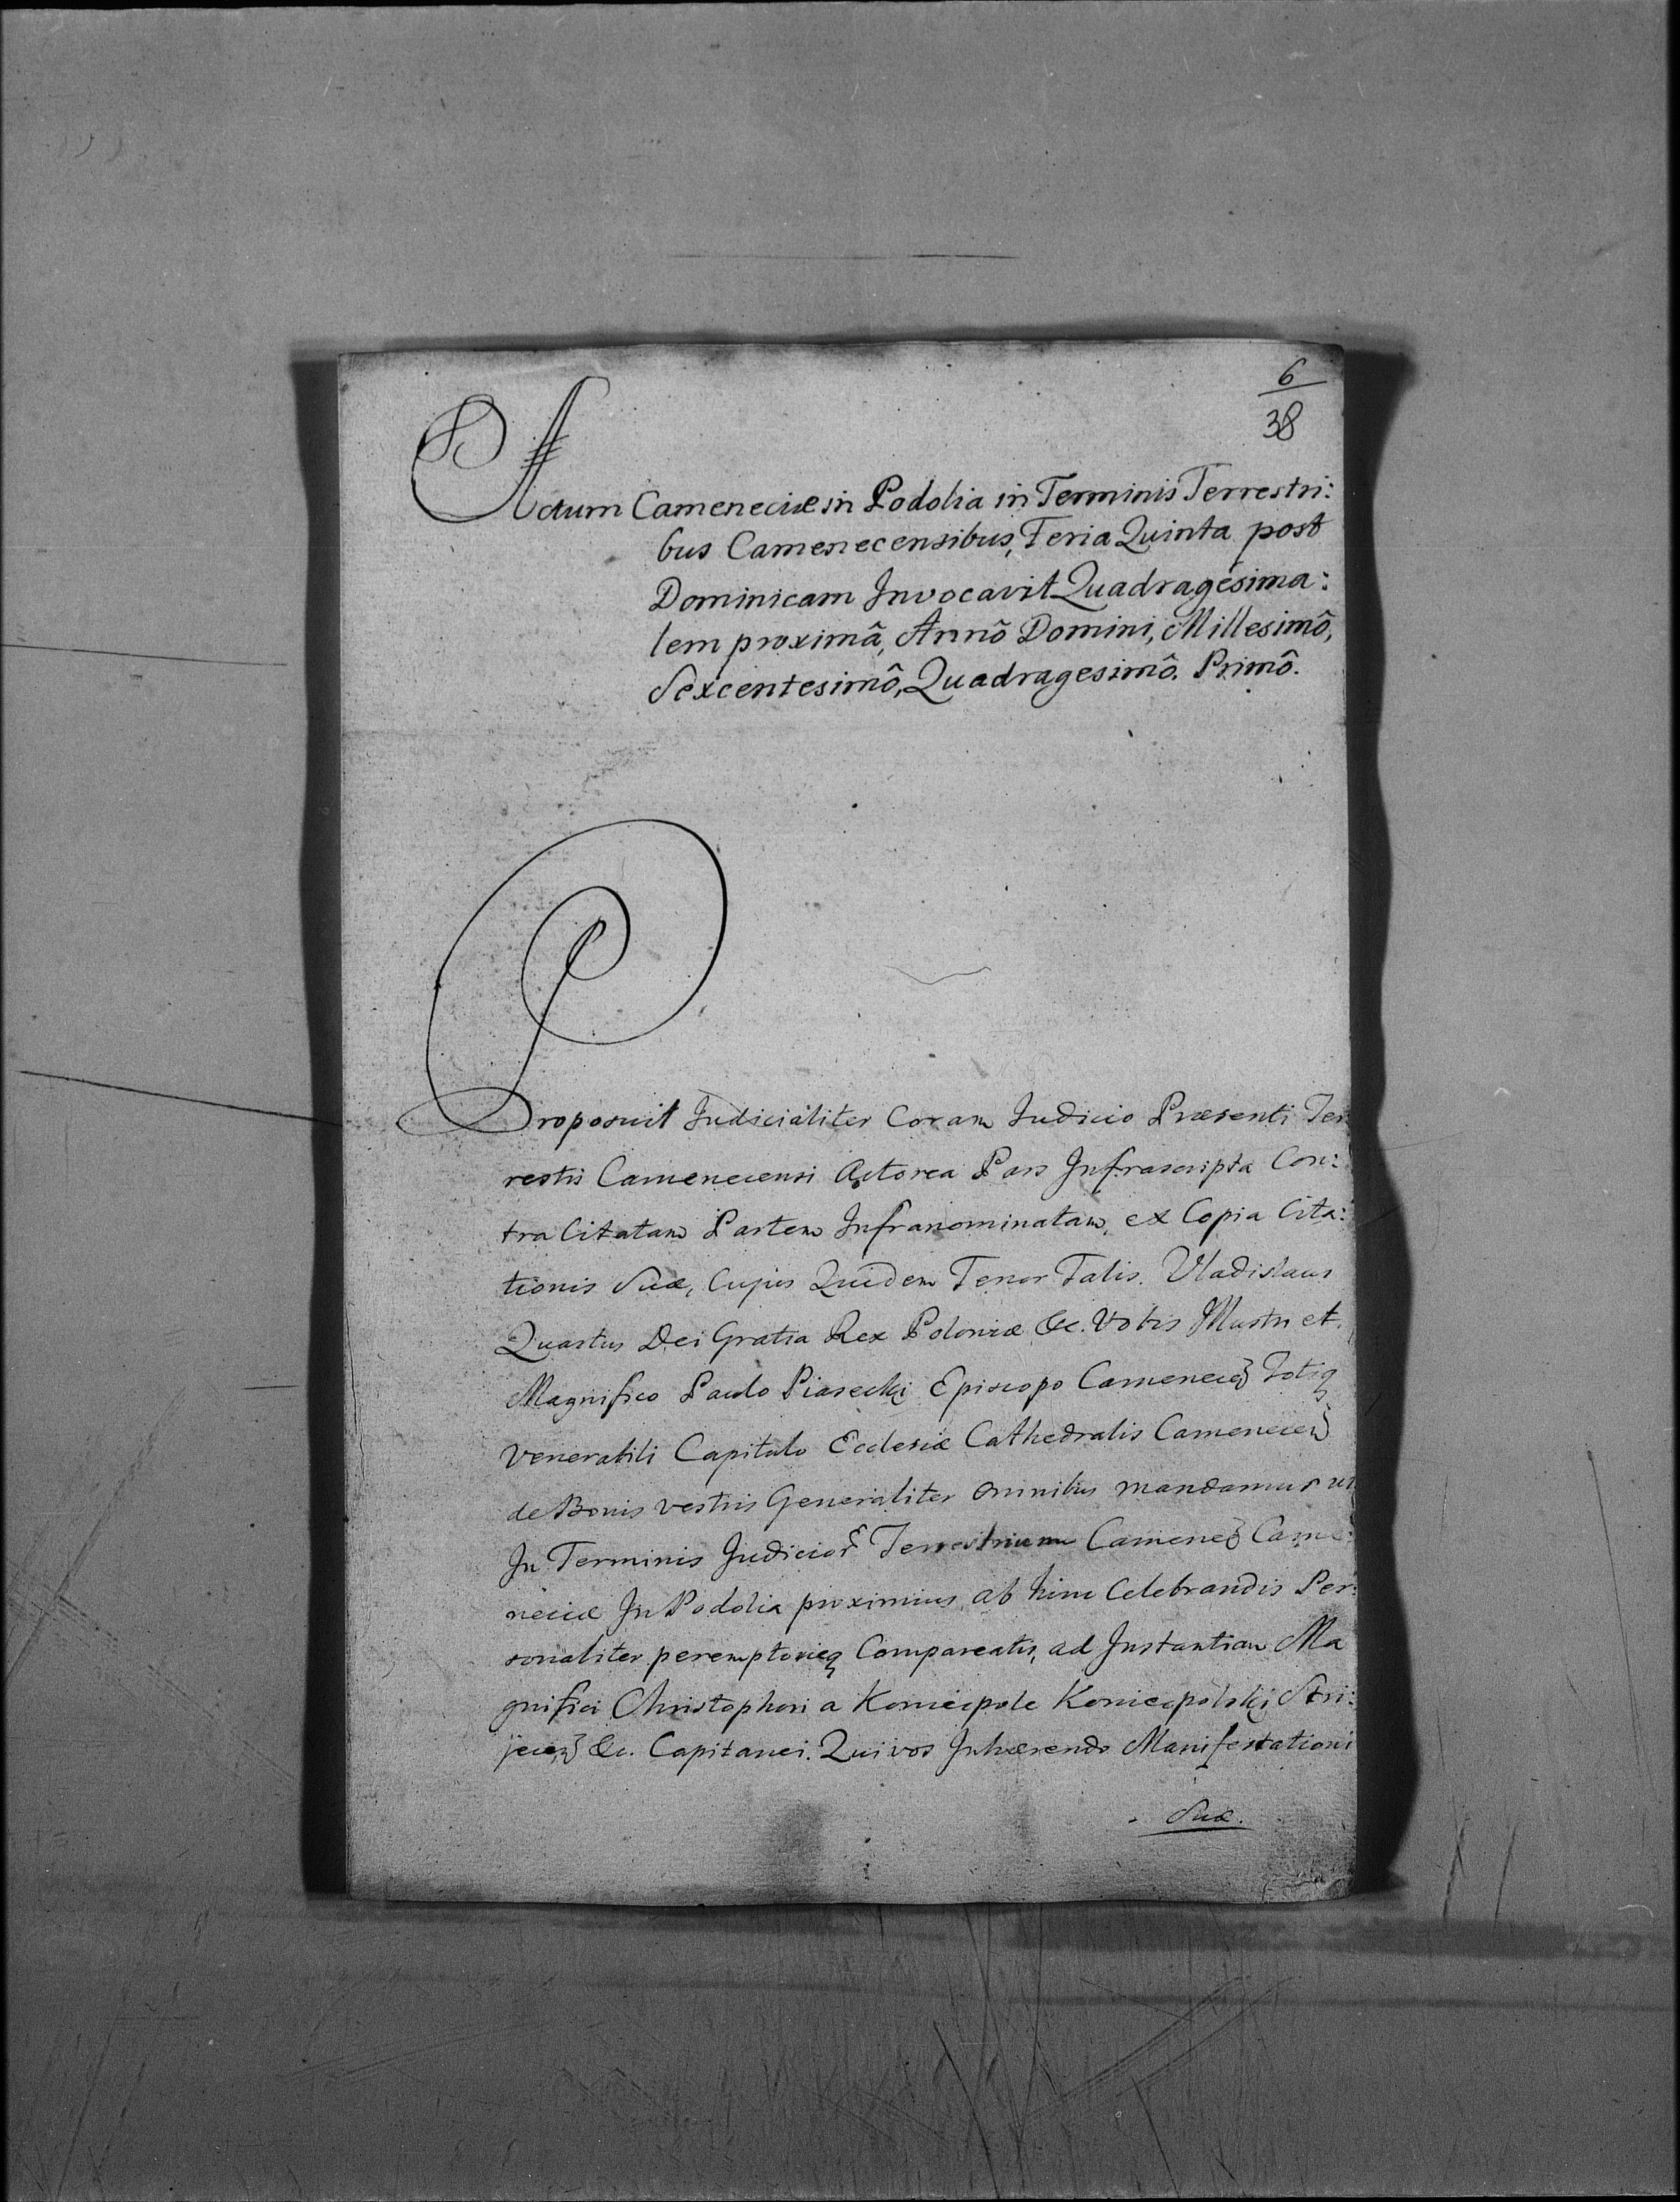 6
38
Actum Cameneciæ in Podolia in Terminis Terrestri:
bus Camenecensibus, Feria Quinta post
Dominicam Invocavit Quadragesima:
lem proximâ, Annô Domini, Millesimô,
Sexcentesimô, Quadragesimô. Primô.
Proposuit Judicialiter Coram Judicio Præsenti Ter
restri Camenecensi Actorea Pars Infrascripta Con:
tra Citatam Partem Infranominatam, ex Copia Cita:
tionis Suæ, Cujus Quidem Tenor Talis. Vladislaus
Quartus Dei Gratia Rex Poloniæ &c. Vobis Illustri et
Magnifico Paulo Piasecki Episcopo Camenecen Totiq
Venerabili Capitulo Ecclesiæ Cathedralis Camenecen
de Bonis vestris Generaliter omnibus mandamus ut
In Terminis Judicior Terrestrium Camenec Came:
neciæ In Podolia proximius ab hinc Celebrandis Per:
sonaliter peremptorieq Compareatis, ad Instantiam Ma
gnifici Christophori a Koniecpole Koniecpolski Stri:
jecen &c. Capitanei. Qui vos Inhærendo Manifestationi
Suæ.